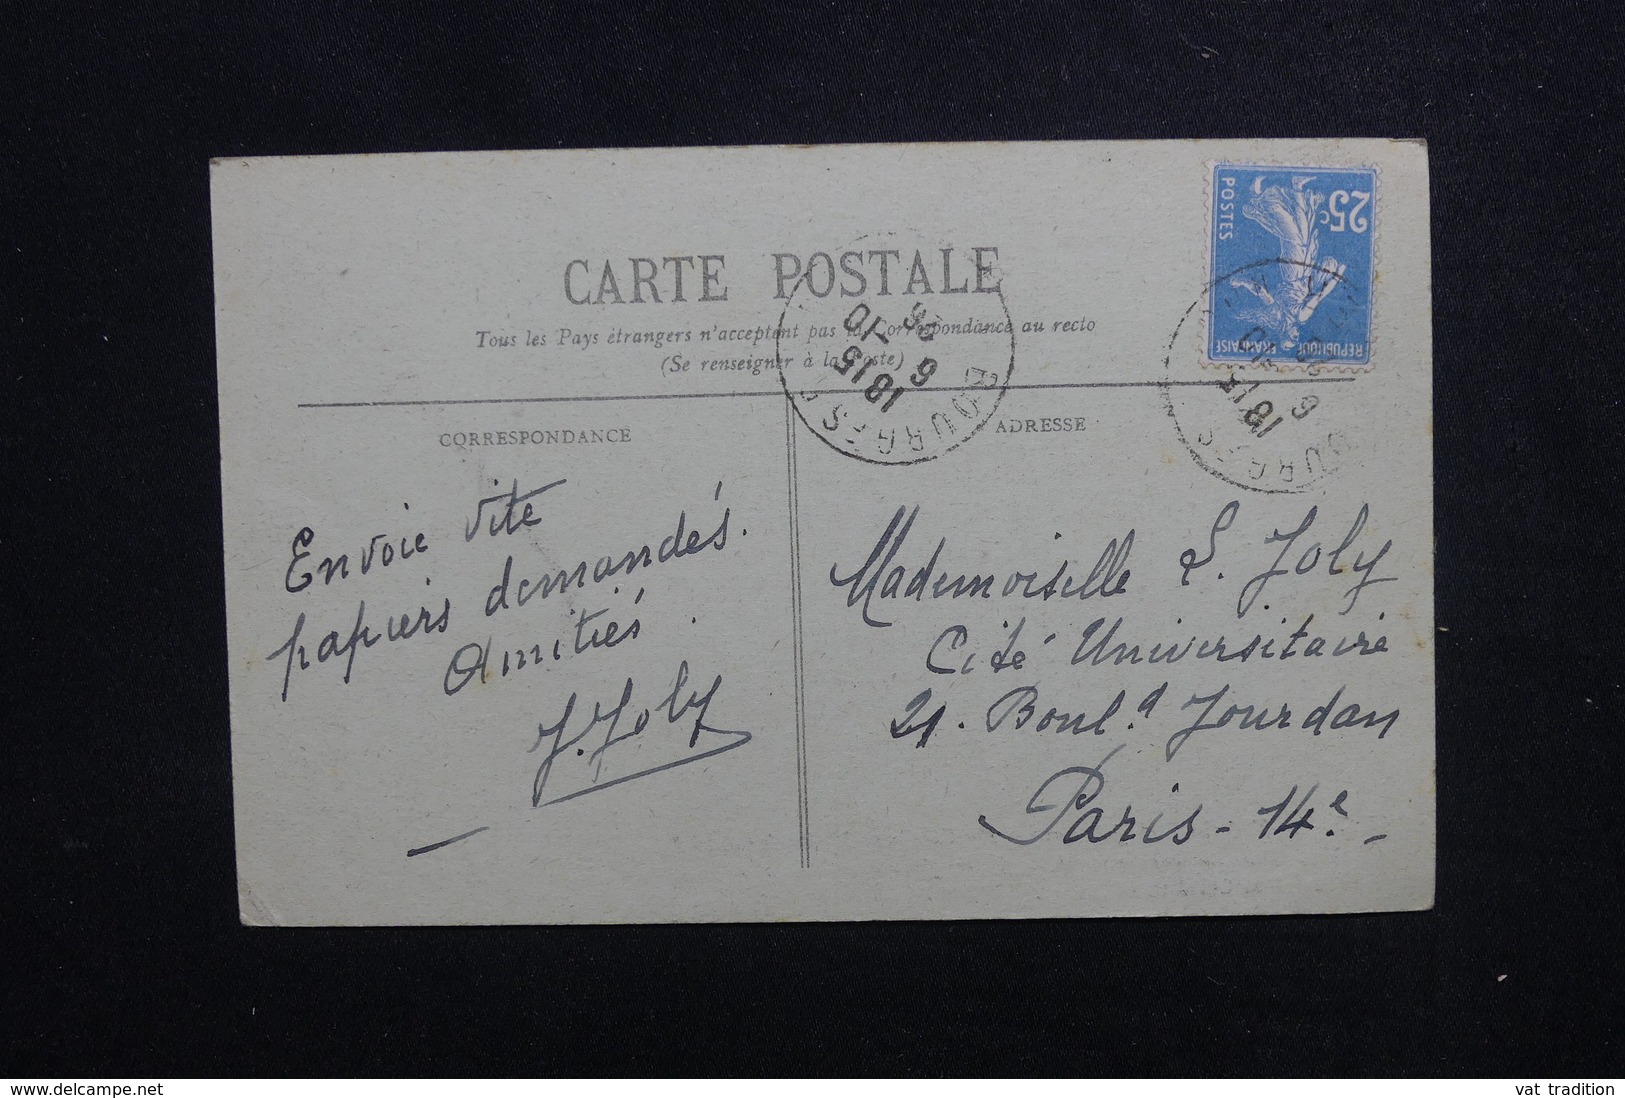 CARTE POSTALE
Tous les Pays étrangers n'acceptent pas la Correspondance au recto
(Se renseigner à la Poste)
CORRESPONDANCE
ADRESSE
25c
POSTES
REPUBLIQUE FRANÇAISE
BOURGES
1815
6 -10
BOURGES
1815
Envoie vite
papiers demandés.
Amitiés.
J. Joly
Mademoiselle L. Joly
Cité Universitaire
21. Boul.d Jourdan
Paris - 14e. -
www.delcampe.net
vat_tradition